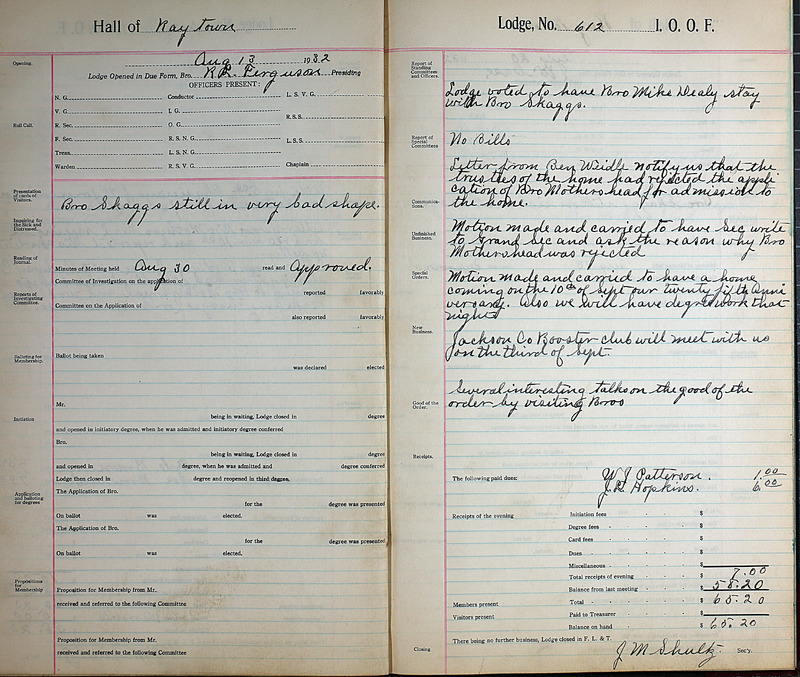 Hall of Raytown
Aug 13 1932
Opening.
Lodge Opened in Due Form, Bro. R.R. Ferguson Presiding
OFFICERS PRESENT:
N. G. Conductor L. S. V. G.
V. G. I. G.
R. S. S.
Roll Call.
R. Sec. O. G.
F. Sec. R. S. N. G. L. S. S.
Treas. L. S. N. G.
Warden R. S. V. G. Chaplain
Presentation
of cards of
Visitors.
Bro Skaggs still in very bad shape.
Inquiring for
the Sick and
Distressed.
Reading of
Journal.
Minutes of Meeting held Aug 30 read and Approved.
Committee of Investigation on the application of
reported favorably
Reports of
Investigating
Committee.
Committee on the Application of
also reported favorably
Balloting for
Membership.
Ballot being taken
was declared elected
Mr.
being in waiting, Lodge closed in degree
Initiation
and opened in initiatory degree, when he was admitted and initiatory degree conferred
Bro.
being in waiting, Lodge closed in degree
and opened in degree, when he was admitted and degree conferred
Lodge then closed in degree and reopened in third degree.
Application
and balloting
for degrees
The Application of Bro.
for the degree was presented
On ballot was elected.
The Application of Bro.
for the degree was presented
On ballot was elected.
Propositions
for
Membership
Proposition for Membership from Mr.
received and referred to the following Committee
Proposition for Membership from Mr.
received and referred to the following Committee
Lodge, No. 612 I. O. O. F.
Report of
Standing
Committees
and Officers.
Lodge voted to have Bro Mike Dealy stay
with Bro Skaggs.
Report of
Special
Committees
No Bills
Letter from Ben Weidle notify us that the
trustees of the home had rejected the appli
cation of Bro Mothershead for admission to
the home.
Communica-
tions.
Unfinished
Business.
Motion made and carried to have Sec write
to Grand Sec and ask the reason why Bro
Mothershead was rejected
Special
Orders.
Motion made and carried to have a home
coming on the 10th of Sept our twenty fifth Anni
versary. Also we will have degree work that
night
New
Business.
Jackson Co Booster club will meet with us
on the third of Sept.
Good of the
Order.
Several interesting talks on the good of the
order by visiting Bros
Receipts.
The following paid dues: W J Patterson. 1.00
J.R. Hopkins. 6.00
Receipts of the evening Initiation fees $
Degree fees $
Card fees $
Dues $
Miscellaneous $
Total receipts of evening 7.00
Balance from last meeting $ 58.20
Members present Total $ 65.20
Visitors present Paid to Treasurer $
Balance on hand $ 65.20
There being no further business, Lodge closed in F. L. & T.
Closing J M Shultz. Sec'y.